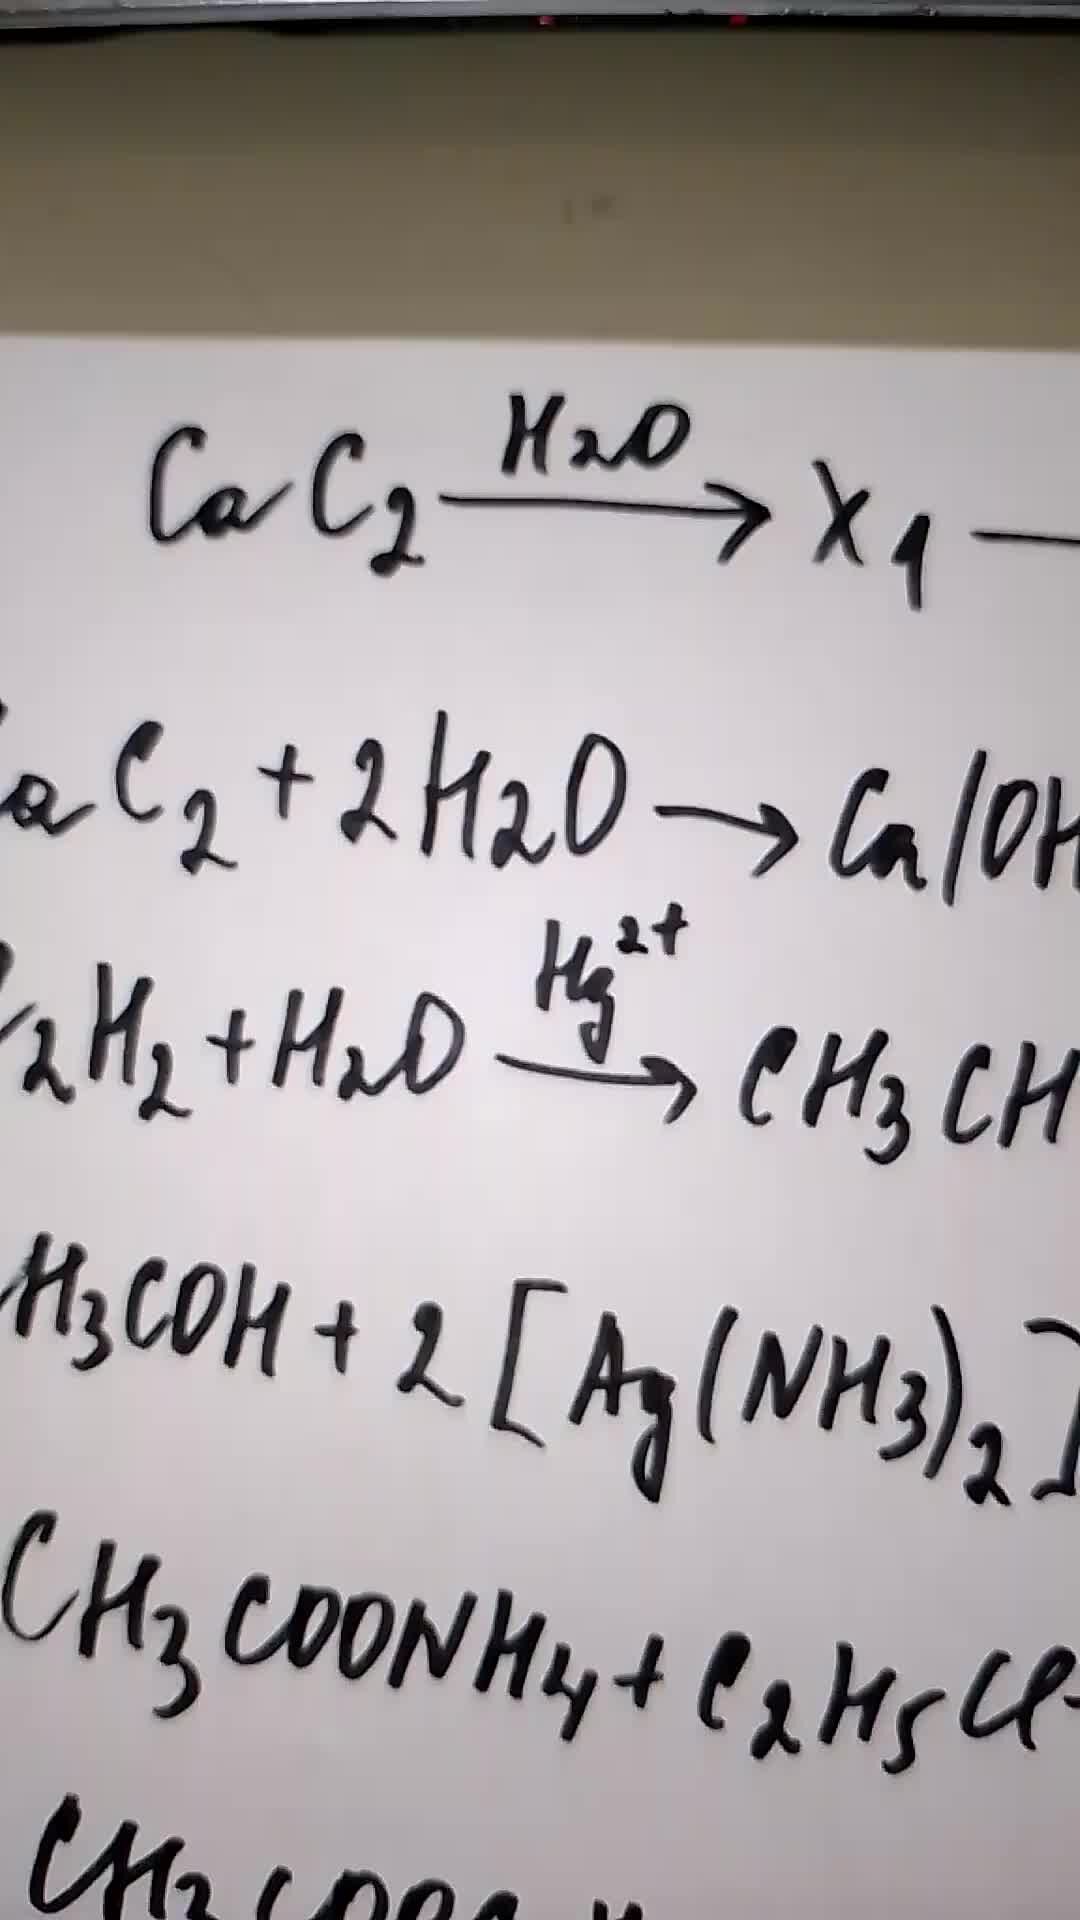 CaC2 H2O → X1 —
aC2 + 2H2O → Ca(OH
2H2 + H2O Hg2+ → CH3CH
H3COH + 2[Ag(NH3)2]
CH3COONH4 + C2H5Cl